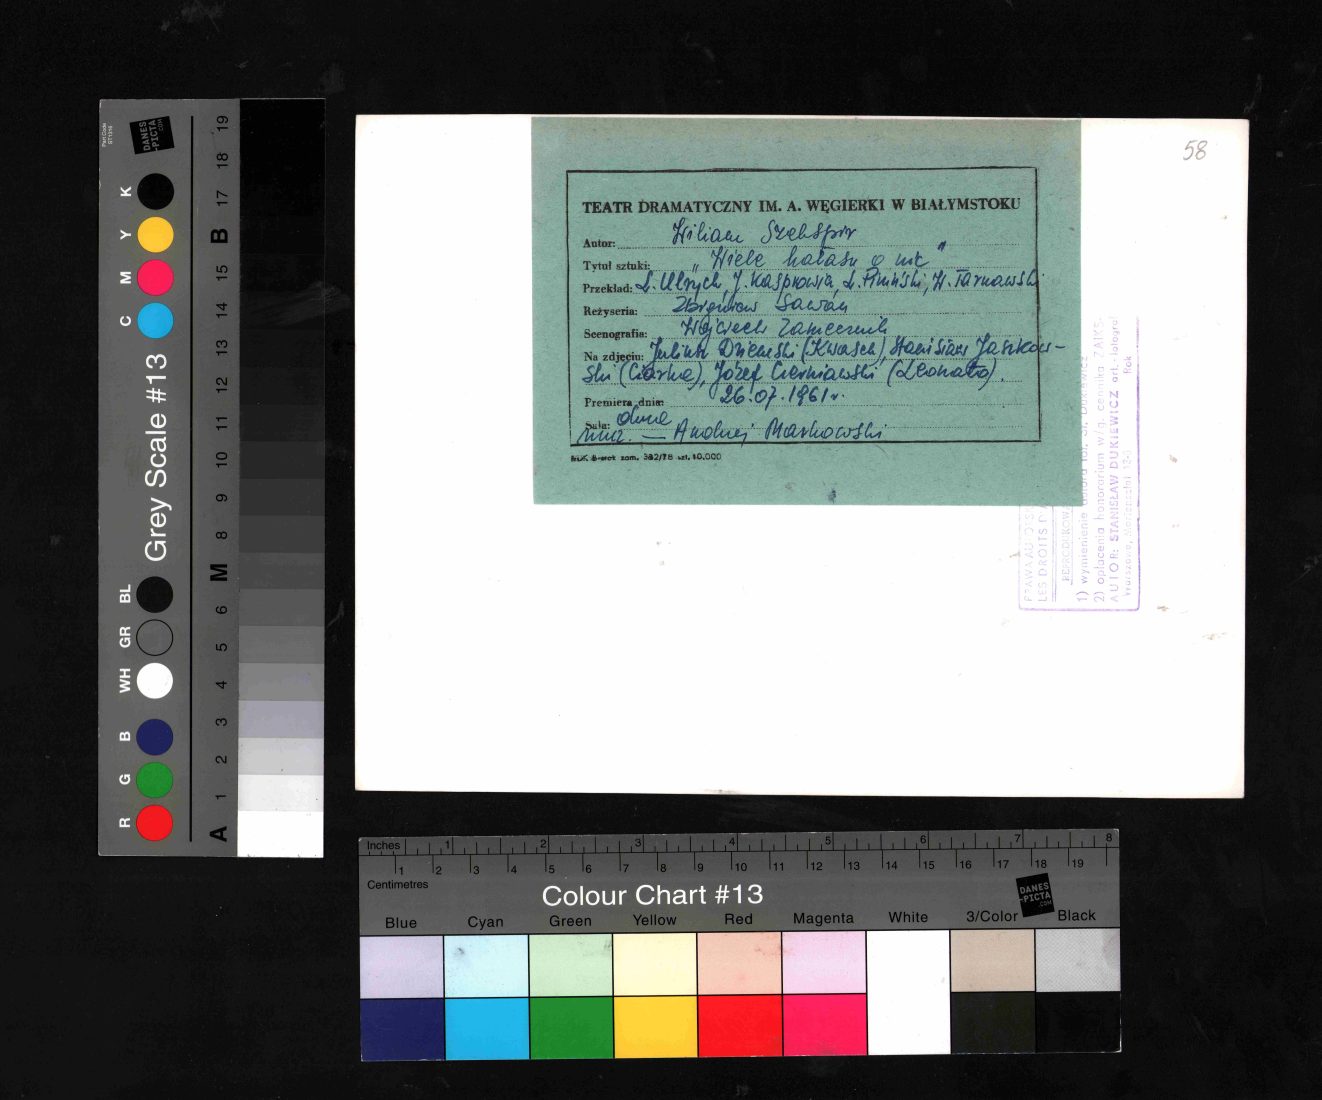 58
TEATR DRAMATYCZNY IM. A. WĘGIERKI W BIAŁYMSTOKU
Autor: Wiliam Szekspir
Tytuł sztuki: „Wiele hałasu o nic"
Przekład: L. Ulrych, J. Kasprowicz, L. Piniński, W. Tarnawski
Reżyseria: Zbigniew Sawan
Scenografia: Wojciech Zamecznik
Na zdjęciu: Juliusz (Kwasek), Stanisław Jaszkow-
ski (Ciarka), Józef Czerniawski (Leonato).
Premiera dnia: 26.07.1961 r.
Sala: duża
muz. — Andrzej Markowski
zam. 382/78 szt. 10.000
PRAWA AUTORSK
LES DROITS D'A
REPRODUKOWA
1) wymienienie autora fot. St. Dukiewicz
2) opłacenia honorarium w/g. cennika ZAIKS.
AUTOR: STANISŁAW DUKIEWICZ art.-fotograf
Warszawa, Rok
Part Code
ST1316
DANES
-PICTA
.COM
Grey Scale #13
R G B WH GR BL C M Y K
A 1 2 3 4 5 6 M 8 9 10 11 12 13 14 15 B 17 18 19
Inches 1 2 3 4 5 6 7 8
1 2 3 4 5 6 7 8 9 10 11 12 13 14 15 16 17 18 19
Centimetres
Colour Chart #13
DANES
-PICTA
.COM
Blue Cyan Green Yellow Red Magenta White 3/Color Black